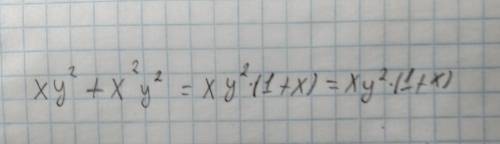 xy² + x²y² = xy²·(1+x) = xy²·(1+x)